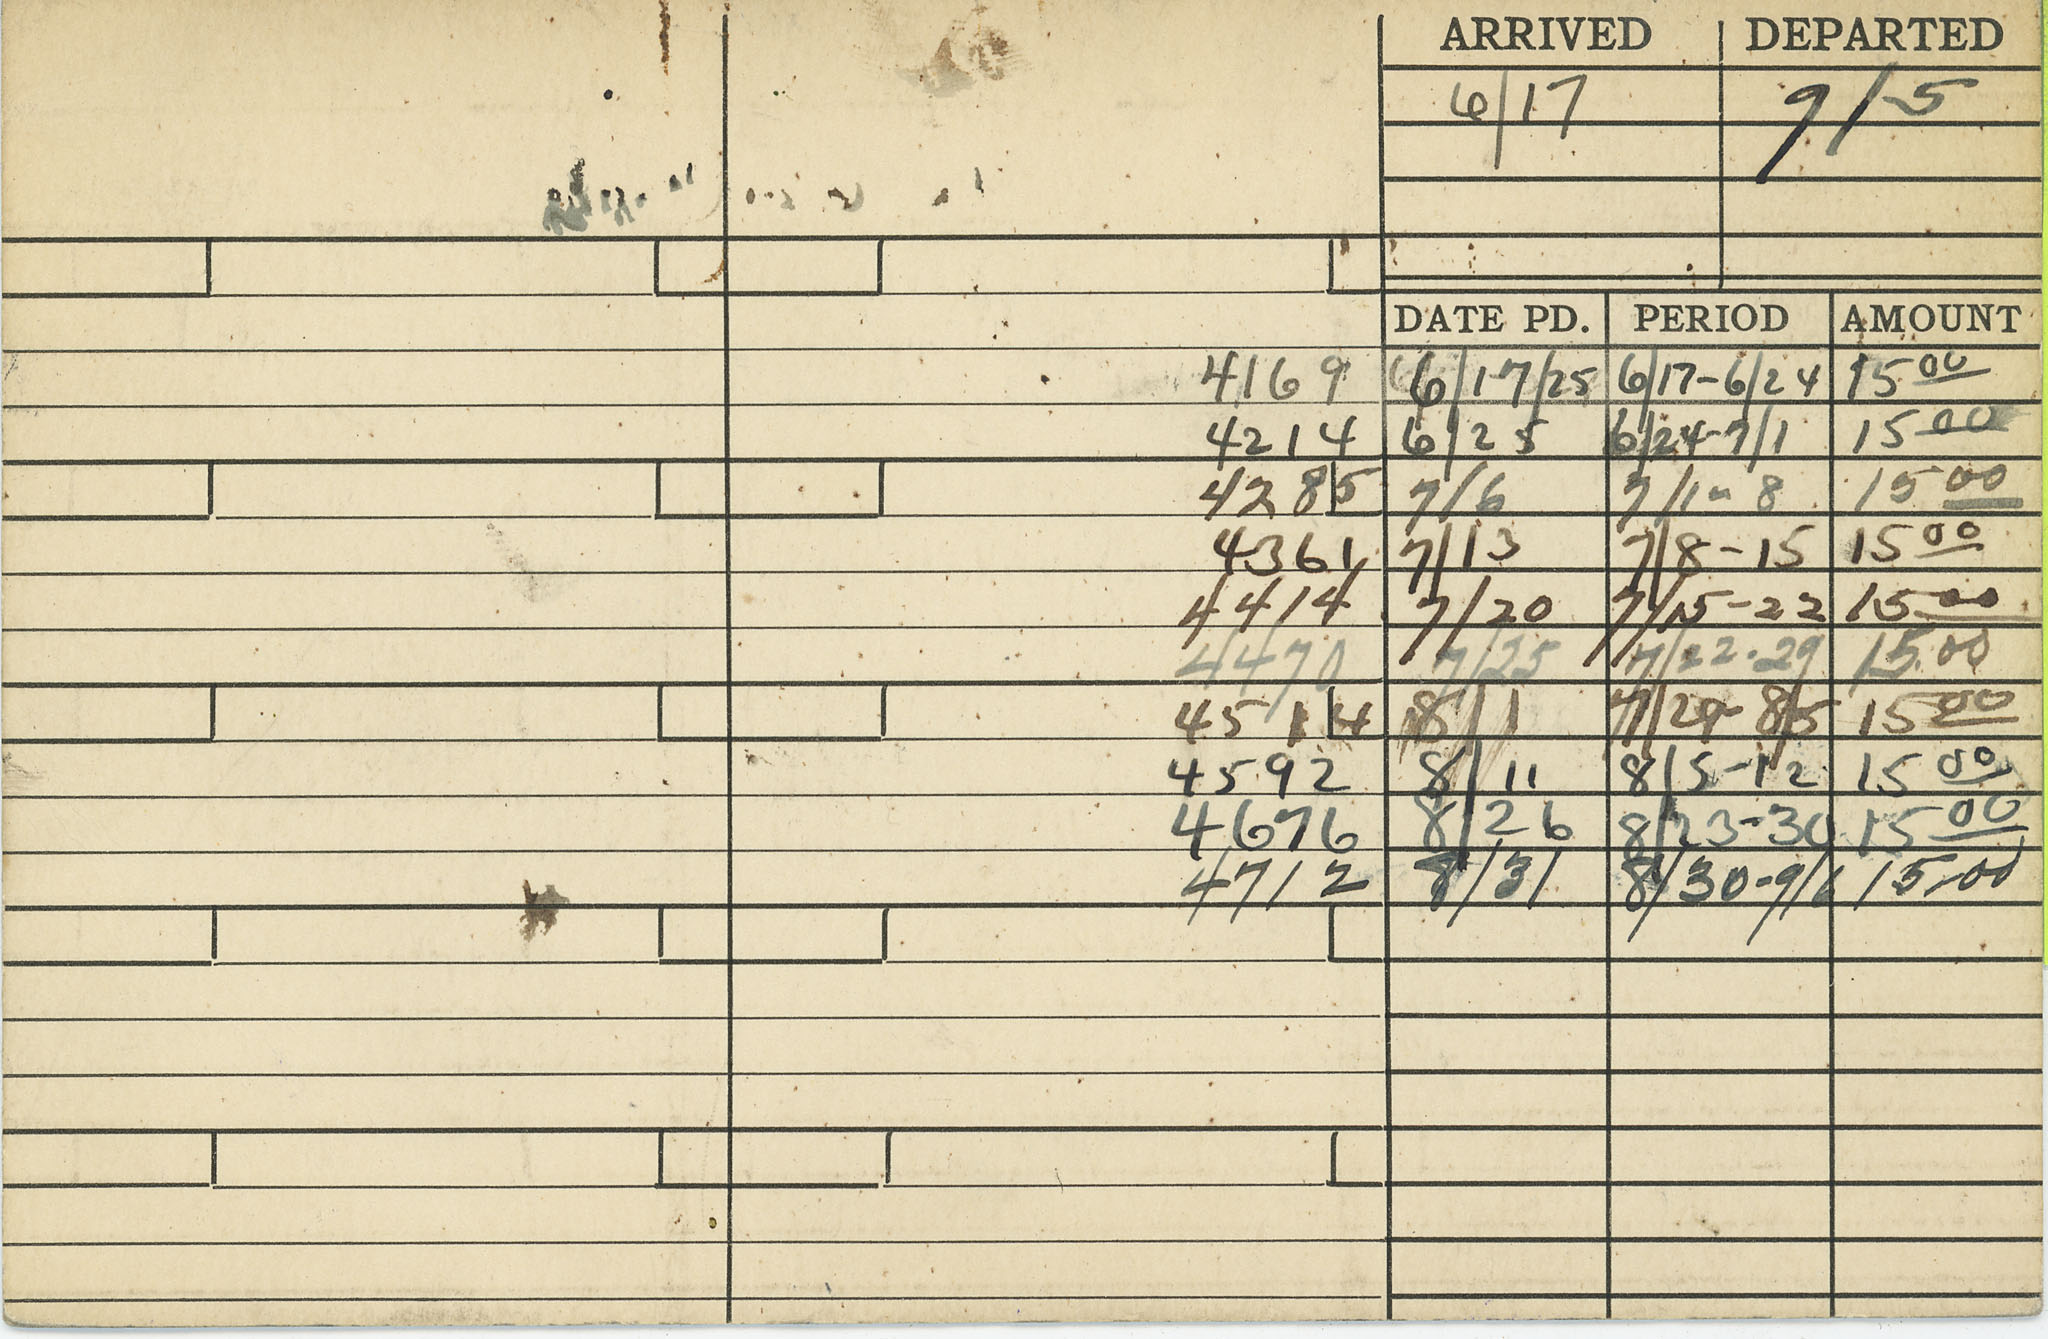 ARRIVED DEPARTED
6/17 9/5
DATE PD. PERIOD AMOUNT
4169 6/17/25 6/17-6/24 15 00
4214 6/25 6/24-7/1 15 00
4285 7/6 7/1-8 15 00
4361 7/13 7/8-15 15 00
4414 7/20 7/15-22 15 00
4470 7/25 7/22-29 15.00
4514 8/1 7/29-8/5 15 00
4592 8/11 8/5-12 15 00
4676 8/26 8/23-30 15 00
4712 8/31 8/30-9/6 15.00